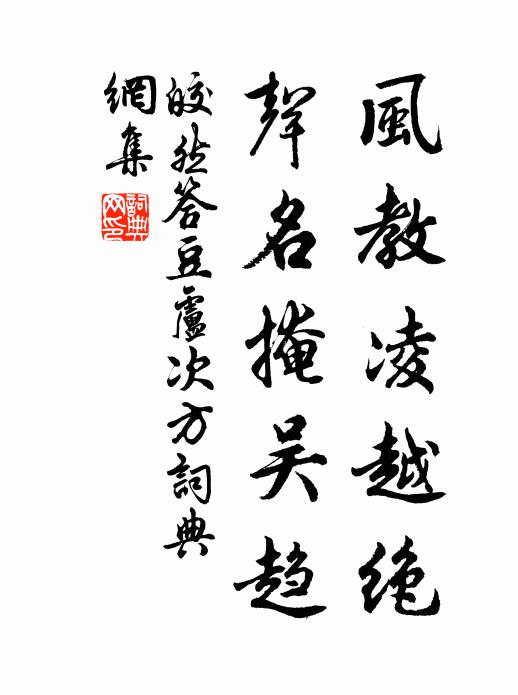 風教凌越絶
聲名掩吴趋
皎然答豆盧次方詞典
網集
詞典網印